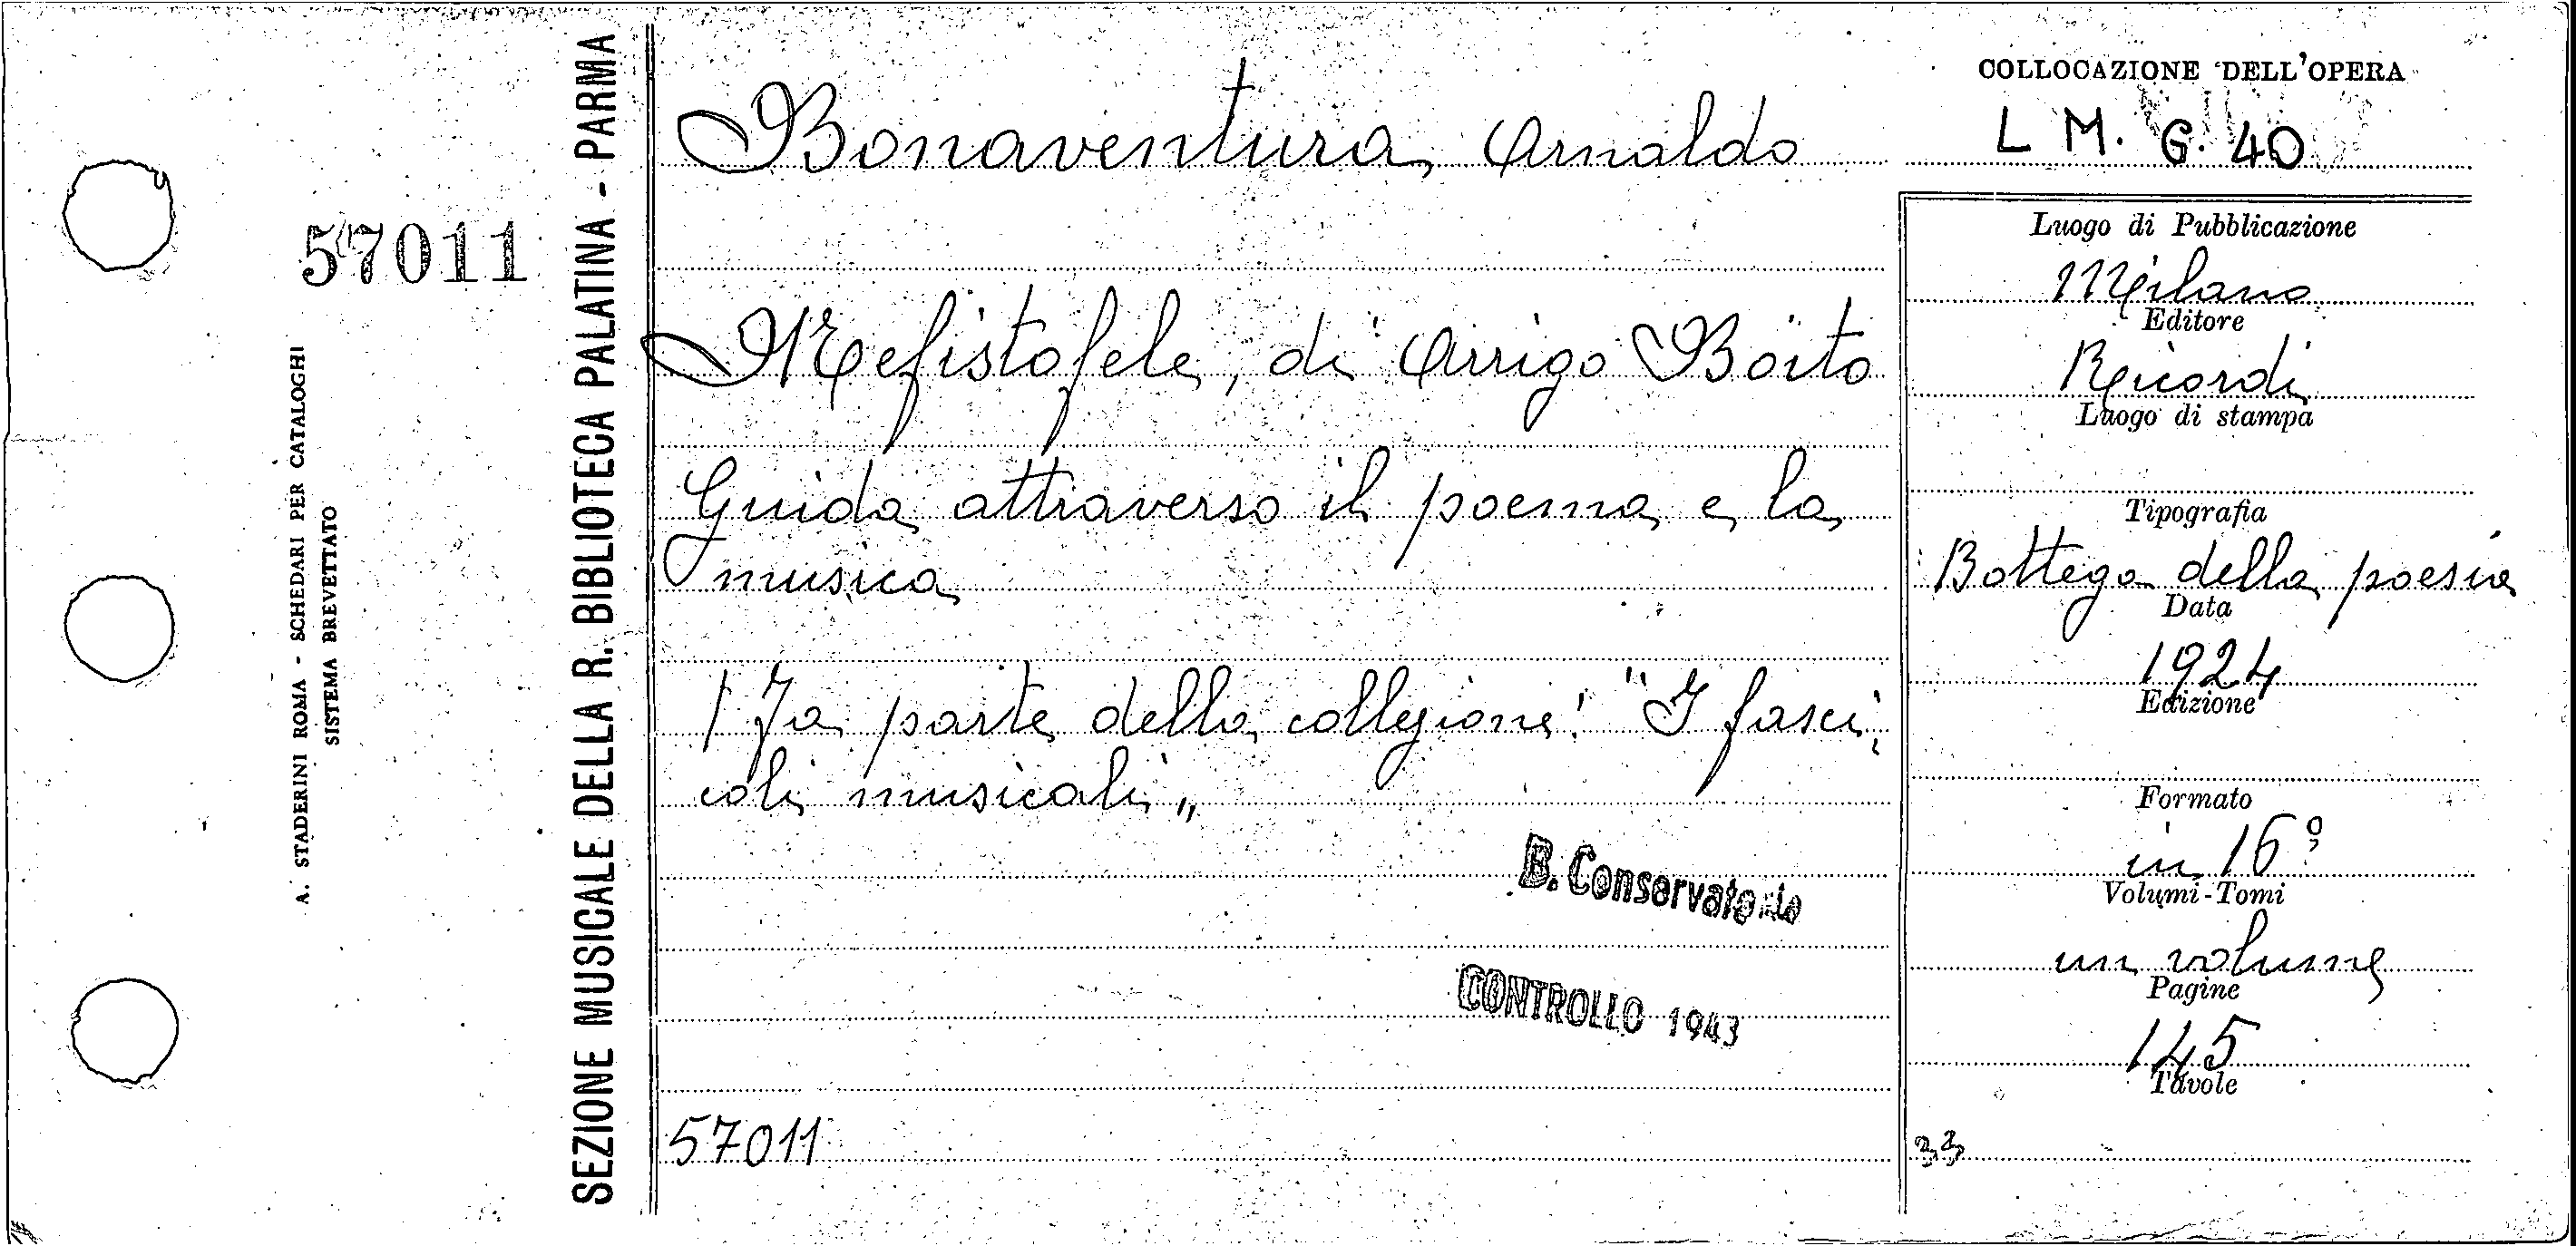 57011
A. STADERINI ROMA - SCHEDARI PER CATALOGHI
SISTEMA BREVETTATO
SEZIONE MUSICALE DELLA R. BIBLIOTECA PALATINA - PARMA
Bonaventura, Arnaldo
Mefistofele, di Arrigo Boito
Guida attraverso il poema e la
musica
Fa parte della collezione: "I fasci,
coli musicali„
B. Conservatorio
CONTROLLO 1943
57011
COLLOCAZIONE DELL'OPERA
L M. G. 40
Luogo di Pubblicazione
Milano
Editore
Ricordi
Luogo di stampa
Tipografia
Bottega della poesia
Data
1924
Edizione
Formato
in 16º
Volumi-Tomi
un volume
Pagine
145
Tavole